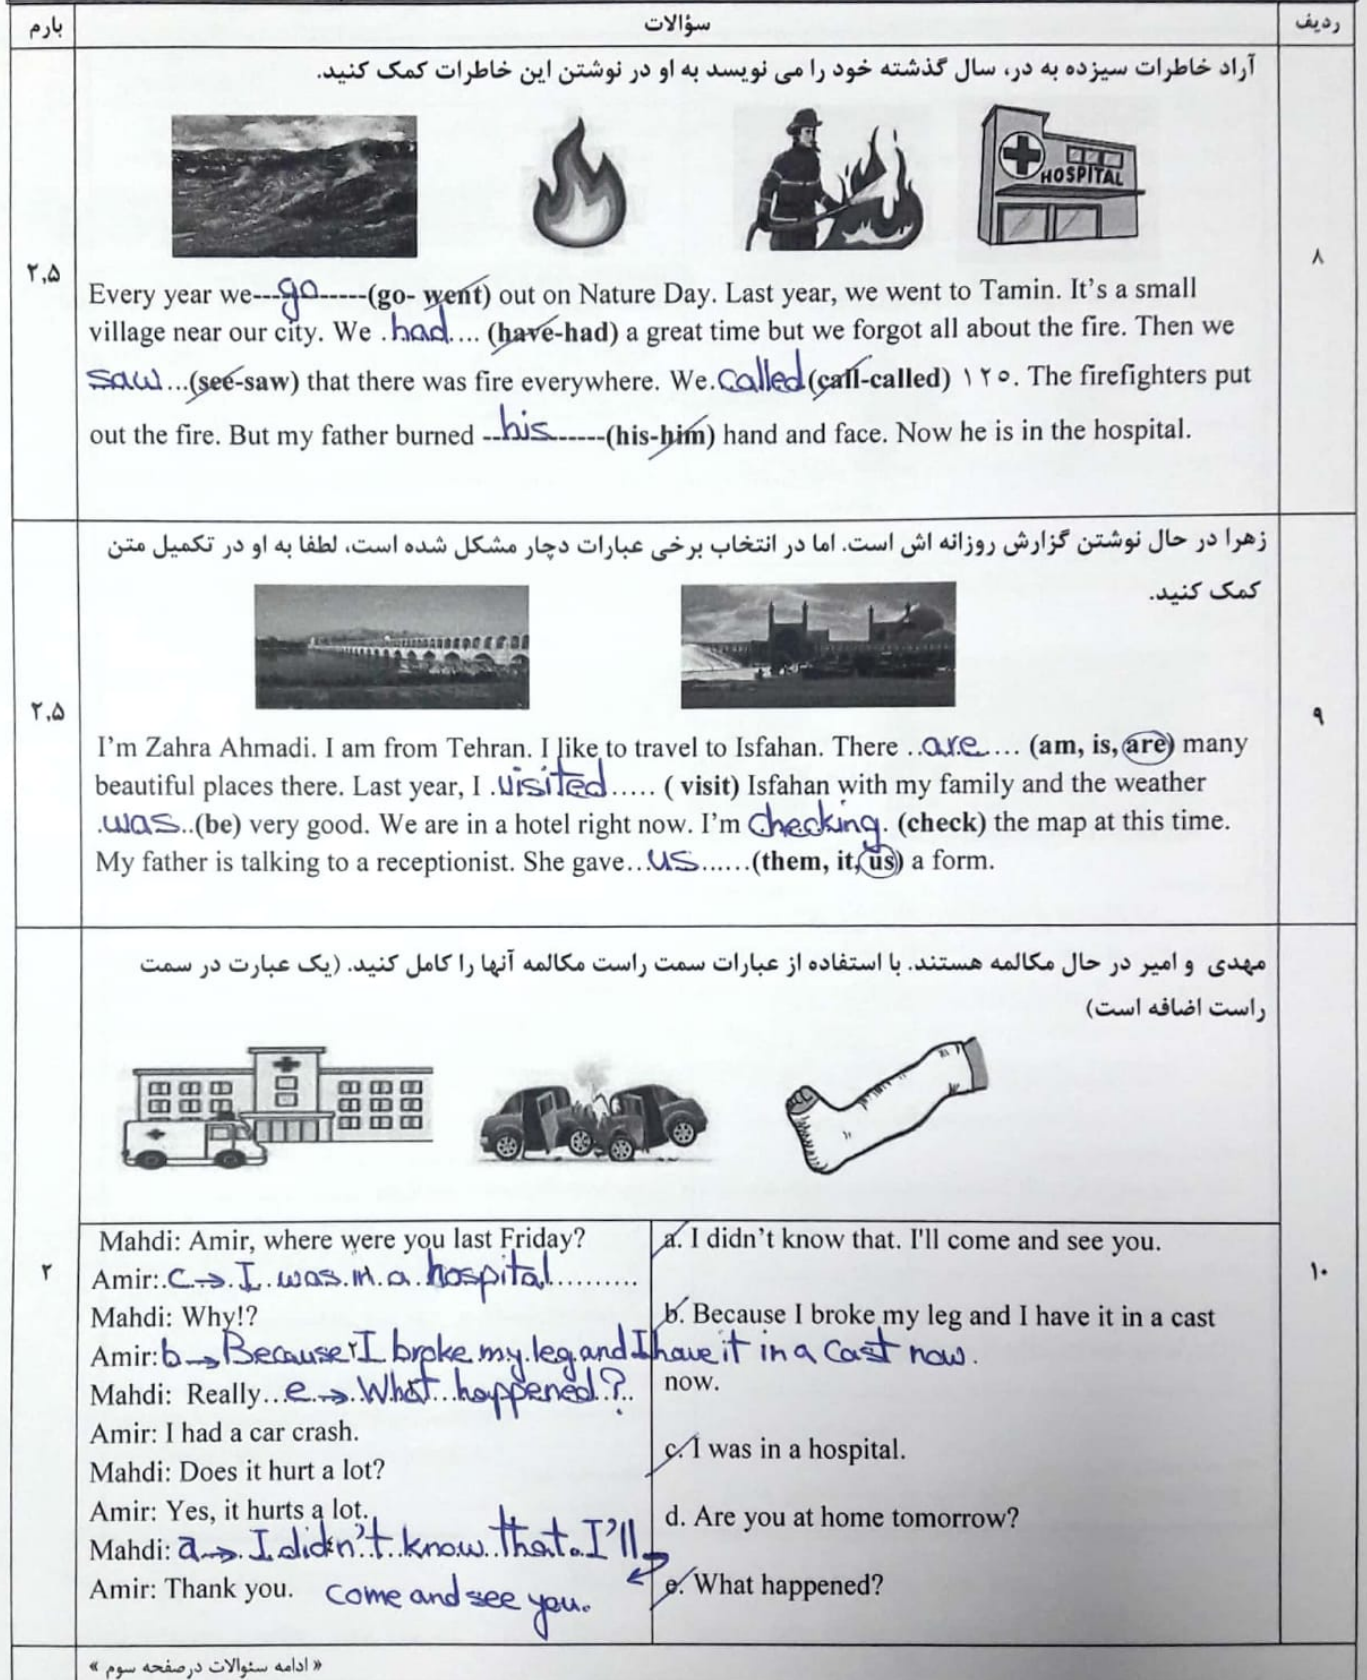 ردیف سؤالات بارم
۸
آراد خاطرات سیزده به در، سال گذشته خود را می نویسد به او در نوشتن این خاطرات کمک کنید.
HOSPITAL
۲,۵
Every year we---go-----(go- went) out on Nature Day. Last year, we went to Tamin. It's a small
village near our city. We .had.... (have-had) a great time but we forgot all about the fire. Then we
saw...(see-saw) that there was fire everywhere. We.called(call-called) ۱۲۰. The firefighters put
out the fire. But my father burned --his------(his-him) hand and face. Now he is in the hospital.
۹
زهرا در حال نوشتن گزارش روزانه اش است. اما در انتخاب برخی عبارات دچار مشکل شده است، لطفا به او در تکمیل متن
کمک کنید.
۲,۵
I'm Zahra Ahmadi. I am from Tehran. I like to travel to Isfahan. There ..are.... (am, is, are) many
beautiful places there. Last year, I .visited..... ( visit) Isfahan with my family and the weather
.was..(be) very good. We are in a hotel right now. I'm checking. (check) the map at this time.
My father is talking to a receptionist. She gave...us......(them, it, us) a form.
۱۰
مهدی و امیر در حال مکالمه هستند. با استفاده از عبارات سمت راست مکالمه آنها را کامل کنید. (یک عبارت در سمت
راست اضافه است)
۲
Mahdi: Amir, where were you last Friday?
Amir:.c→.I.was.in.a.hospital..........
Mahdi: Why!?
Amir:b→Because I broke.my.leg.and I have it in a cast now.
Mahdi: Really...e.→.What..happened.?..
Amir: I had a car crash.
Mahdi: Does it hurt a lot?
Amir: Yes, it hurts a lot.
Mahdi: a→.I.didn't.know..that.I'll
Amir: Thank you. come and see you.
a. I didn't know that. I'll come and see you.
b. Because I broke my leg and I have it in a cast
now.
c. I was in a hospital.
d. Are you at home tomorrow?
e. What happened?
« ادامه سئوالات درصفحه سوم »